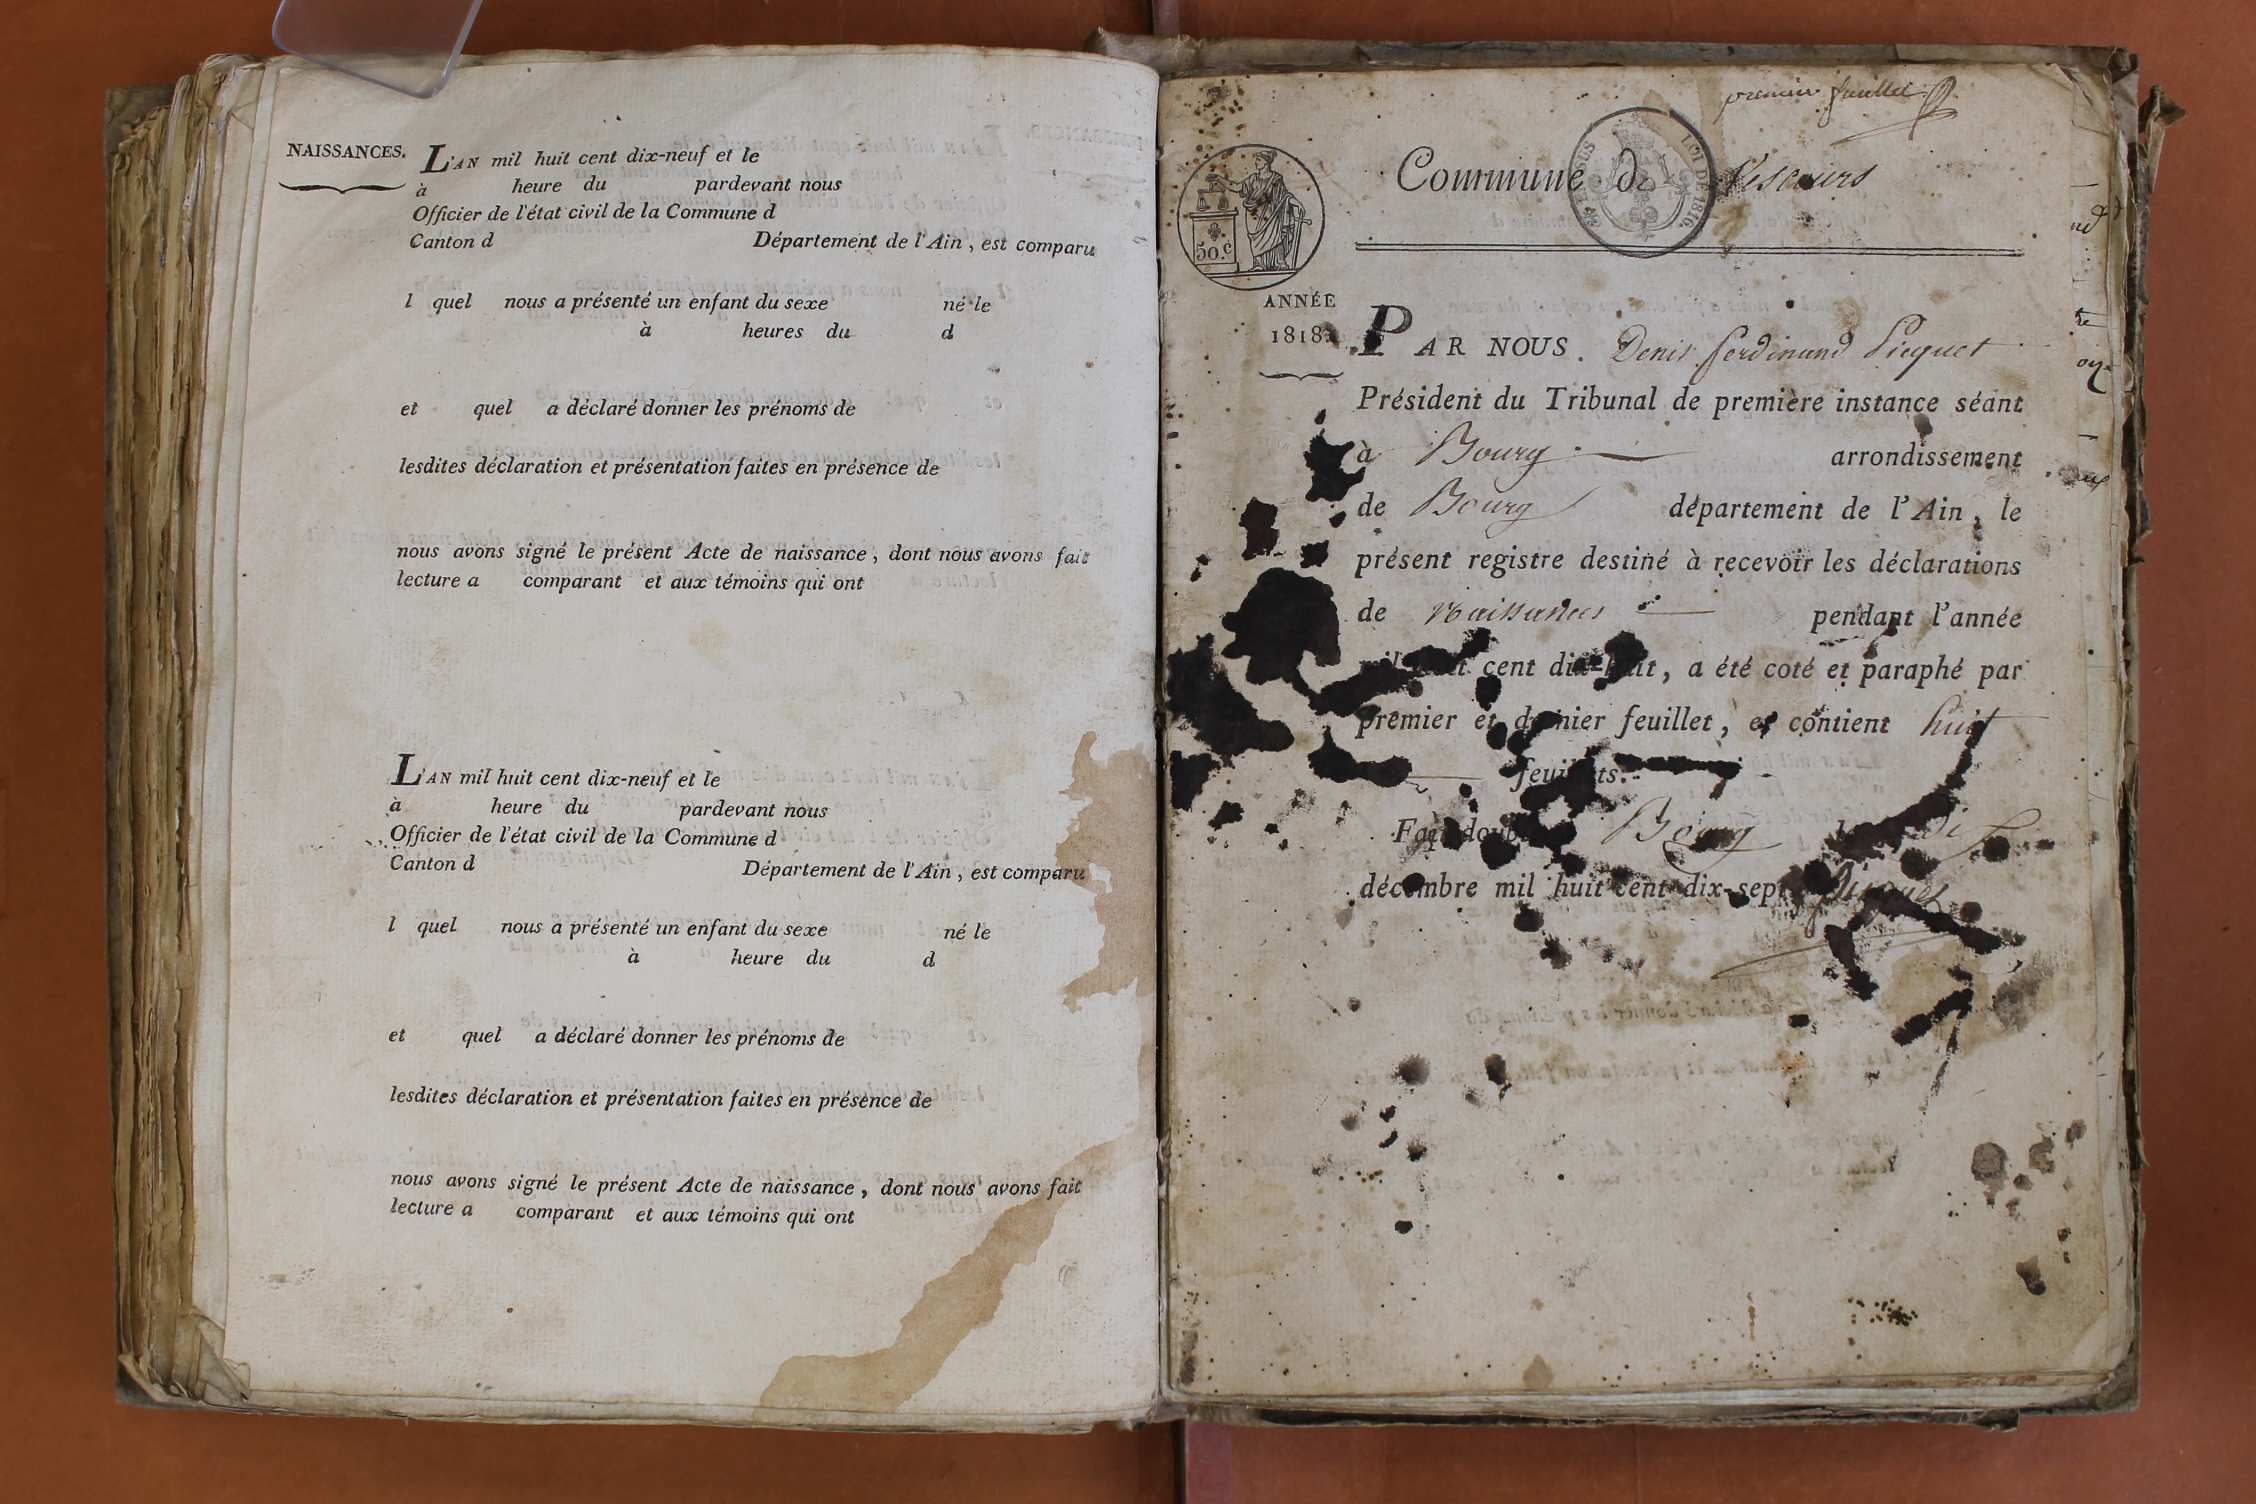 NAISSANCES.
L'AN mil huit cent dix-neuf et le
à heure du pardevant nous
Officier de l'état civil de la Commune d
Canton d Département de l'Ain, est comparu
l quel nous a présenté un enfant du sexe né le
à heures du d
et quel a déclaré donner les prénoms de
lesdites déclaration et présentation faites en présence de
nous avons signé le présent Acte de naissance, dont nous avons fait
lecture a comparant et aux témoins qui ont
L'AN mil huit cent dix-neuf et le
à heure du pardevant nous
Officier de l'état civil de la Commune d
Canton d Département de l'Ain, est comparu
l quel nous a présenté un enfant du sexe né le
à heure du d
et quel a déclaré donner les prénoms de
lesdites déclaration et présentation faites en présence de
nous avons signé le présent Acte de naissance, dont nous avons fait
lecture a comparant et aux témoins qui ont
premier feuillet
LOI DE 1816.
50.c
Commune de Vescours
ANNÉE
1818.
PAR NOUS Denis ferdinand Picquet
Président du Tribunal de première instance séant
à Bourg arrondissement
de Bourg département de l'Ain, le
présent registre destiné à recevoir les déclarations
de Naissances pendant l'année
mil huit cent dix-huit, a été coté et paraphé par
premier et dernier feuillet, et contient huit
feuillets.
Fait double Bourg le dix
décembre mil huit cent dix-sept. Picquet